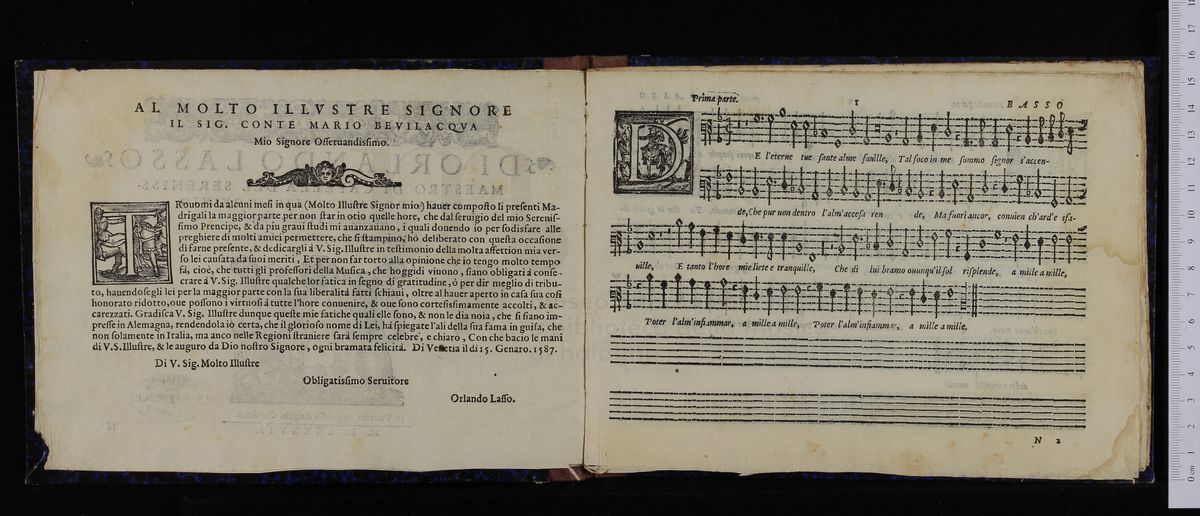 AL MOLTO ILLVSTRE SIGNORE
IL SIG. CONTE MARIO BEVILACQVA
Mio Signore Osseruandissimo.
TRouomi da alcuni mesi in quà (Molto Illustre Signor mio) hauer composto li presenti Ma-
drigali la maggior parte per non star in otio quelle hore, che dal seruigio del mio Serenis-
simo Prencipe, & da piu graui studi mi auanzauano, i quali douendo io per sodisfare alle
preghiere di molti amici permettere, che si stampino, hò deliberato con questa occasione
di farne presente, & dedicargli à V. Sig. Illustre in testimonio della molta affettion mia ver-
so lei causata da suoi meriti, Et per non far torto alla opinione che io tengo molto tempo
fà, cioè, che tutti gli professori della Musica, che hoggidi viuono, siano obligati à conse-
crare à V. Sig. Illustre qualche lor fatica in segno di gratitudine, ò per dir meglio di tribu-
to, hauendosegli lei per la maggior parte con la sua liberalità fatti schiaui, oltre al hauer aperto in casa sua cosi
honorato ridotto, oue possono i virtuosi à tutte l'hore conuenire, & oue sono cortesissimamente accolti, & ac-
carezzati. Gradisca V. Sig. Illustre dunque queste mie fatiche quali elle sono, & non le dia noia, che si siano im-
presse in Alemagna, rendendola io certa, che il glorioso nome di Lei, ha spiegate l'ali della sua fama in guisa, che
non solamente in Italia, ma anco nelle Regioni straniere sarà sempre celebre, e chiaro, Con che bacio le mani
di V.S. Illustre, & le auguro da Dio nostro Signore, ogni bramata felicità. Di Venetia il di 15. Genaro. 1587.
Di V. Sig. Molto Illustre
Obligatissimo Seruitore
Orlando Lasso.
Prima parte. 1 BASSO
DE l'eterne tue sante alme fauille, Tal foco in me sommo signor s'accen-
de, Che pur non dentro l'alm'accesa ren de, Ma fuori ancor, conuien ch'ard'e sfa-
uille, E tanto l'hore mie liete e tranquille, Che di lui bramo ouunqu'il sol risplende, a mille a mille,
Poter l'alm'infiammar, a mille a mille, Poter l'alm'infiammar, a mille a mille.
N 2